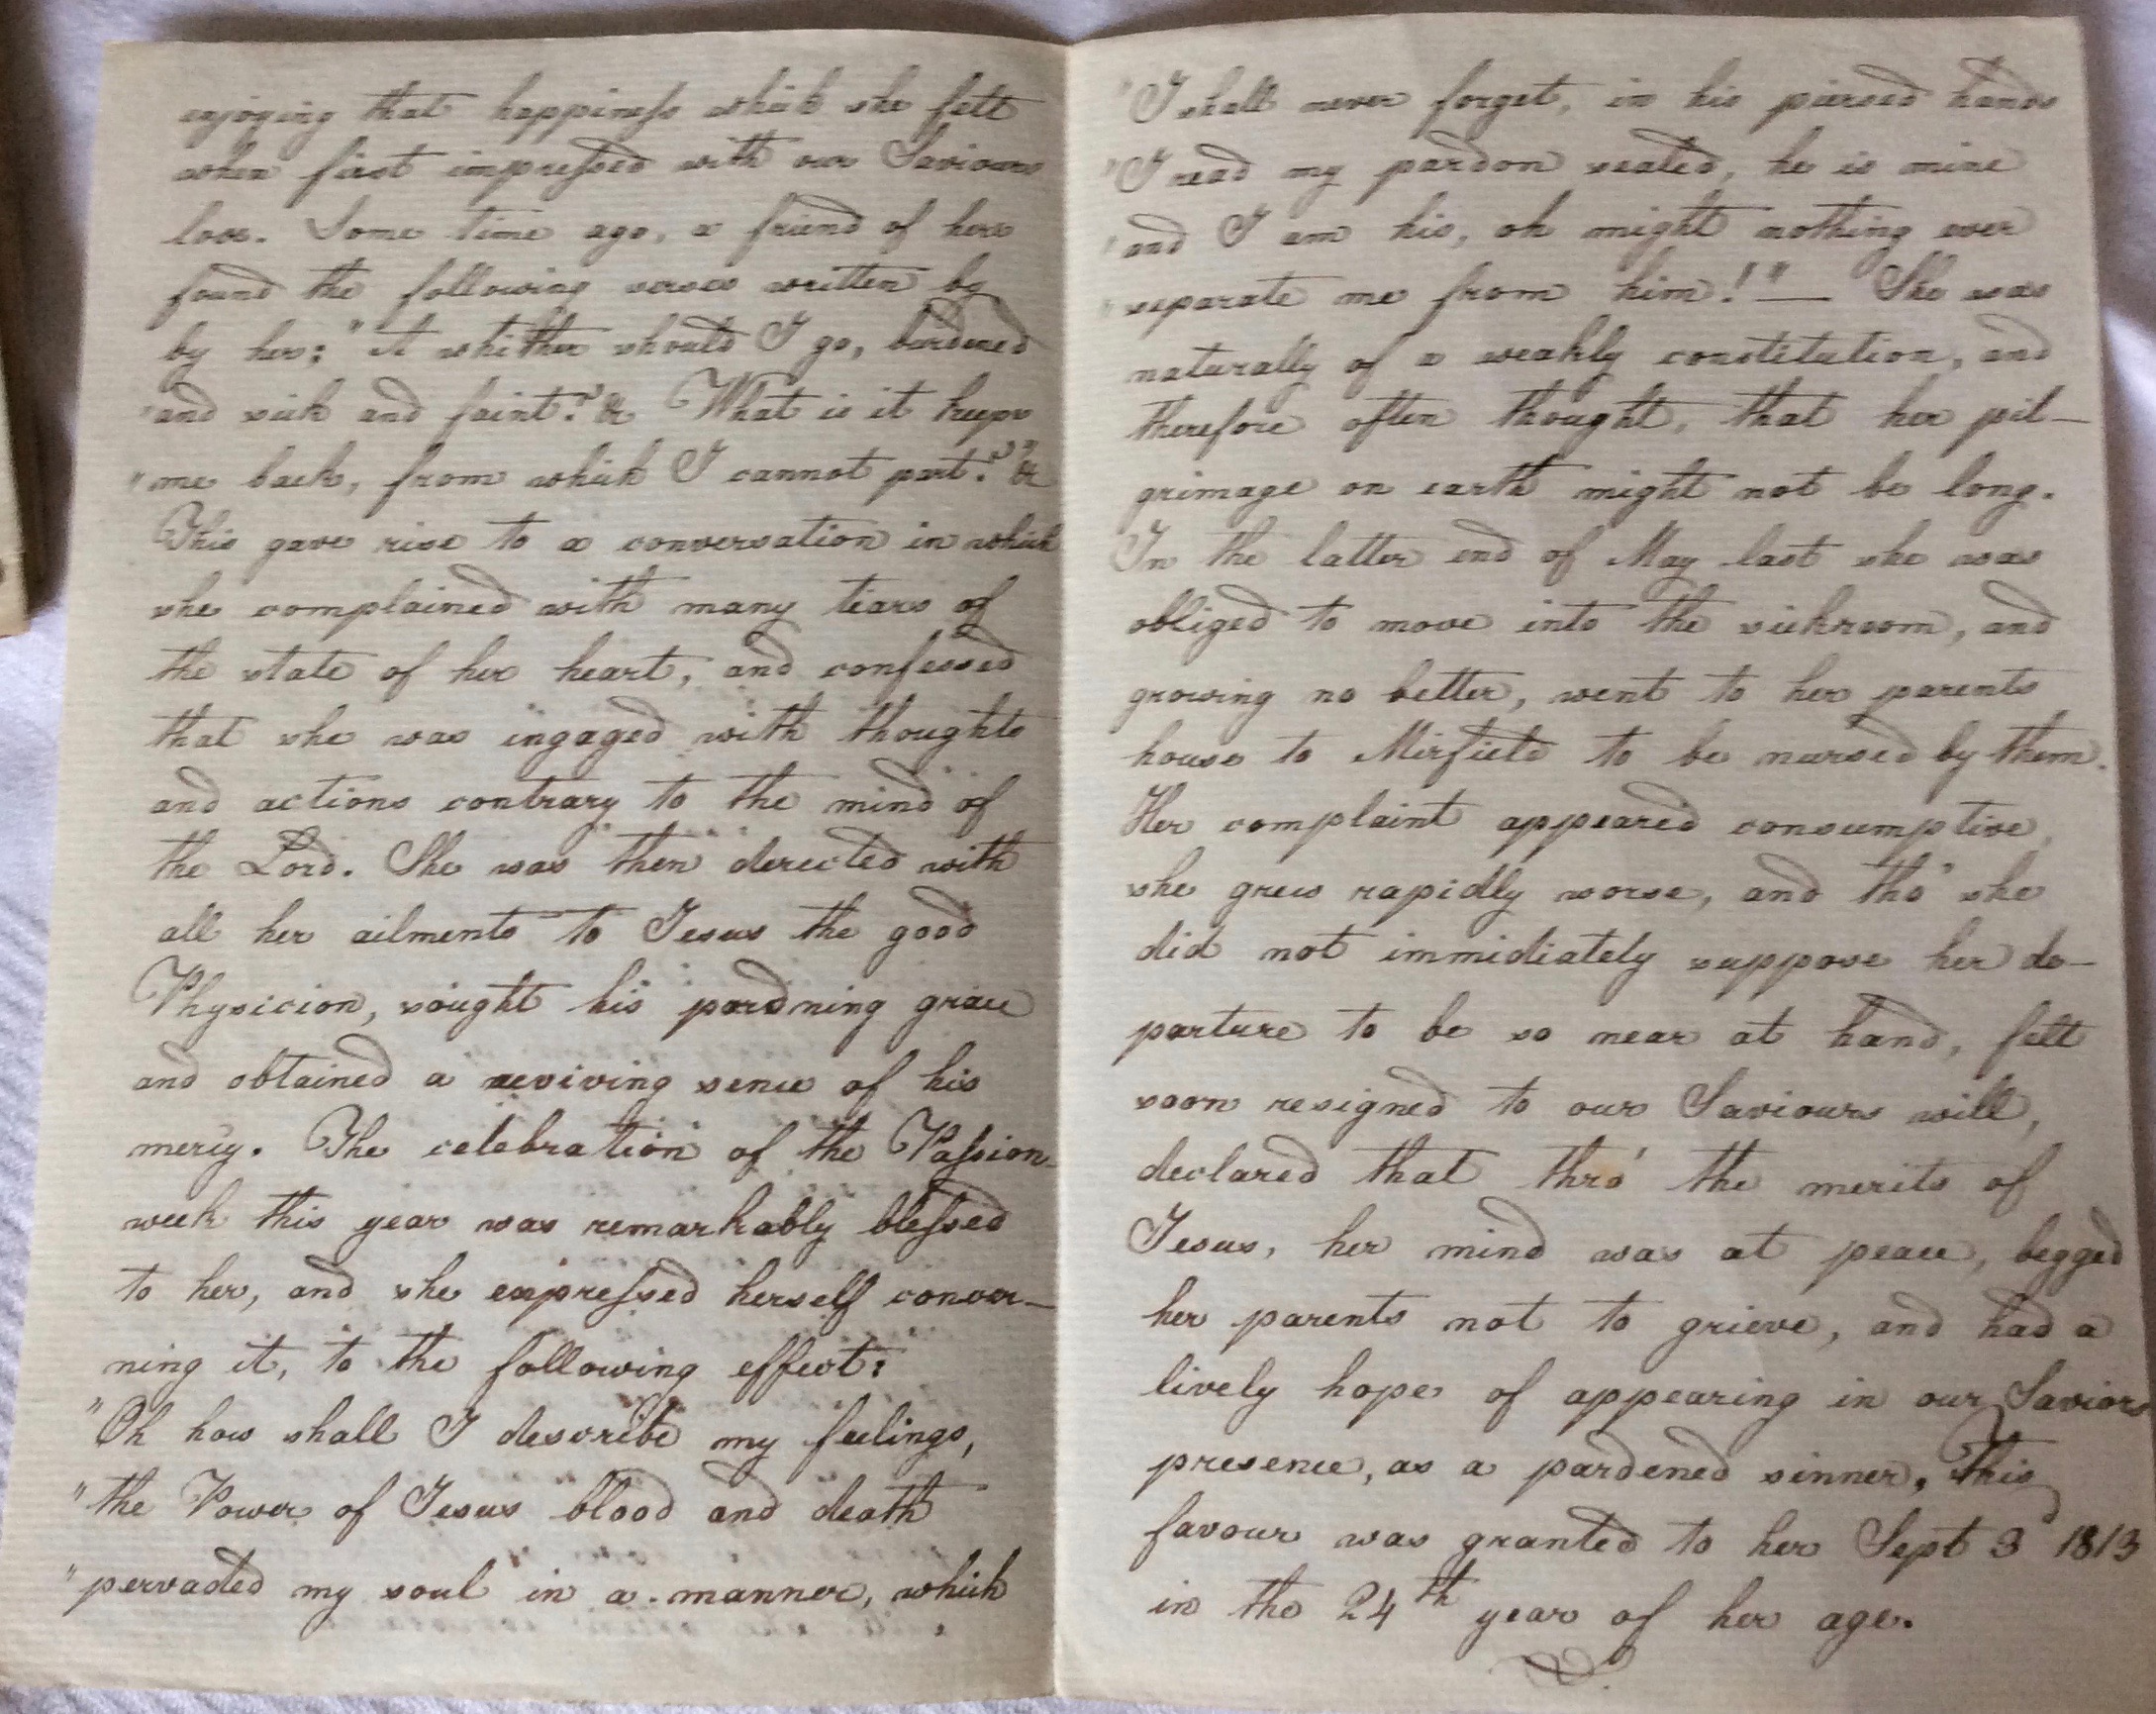 enjoying that happiness which she felt
when first impressed with our Saviours
love. Some time ago, a friend of hers
found the following verses written by
by her: "A whither should I go, burdened
"and sick and faint?" &c What is it keeps
"me back, from which I cannot part?" &c
This gave rise to a conversation in which
she complained with many tears of
the state of her heart, and confessed
that she was ingaged with thoughts
and actions contrary to the mind of
the Lord. She was then derected with
all her ailments to Jesus the good
Physicion, sought his pardning grace
and obtained a reviving sence of his
mercy. The celebration of the Passion-
week this year was remarkably blessed
to her, and she expressed herself concer-
ning it, to the following effect:
"Oh how shall I describe my feelings,
"the Power of Jesus blood and death
"pervaded my soul in a manner, which
"I shall never forget, in his piersed hands
"I read my pardon sealed, he is mine
"and I am his, oh might nothing ever
"separate me from him!" — She was
naturally of a weakly constitution, and
therefore often thought, that her pil-
grimage on earth might not be long.
In the latter end of May last she was
obliged to move into the sickroom, and
growing no better, went to her parents
house to Mirfield to be nursed by them.
Her complaint appeared consumptive,
she grew rapidly worse, and tho' she
did not immidiately suppose her de-
parture to be so near at hand, felt
soon resigned to our Saviours will,
declared that thro' the merits of
Jesus, her mind was at peace, begged
her parents not to grieve, and had a
lively hope of appearing in our Saviors
presence, as a pardened sinner. This
favour was granted to her Sept 3d 1813
in the 24th year of her age.